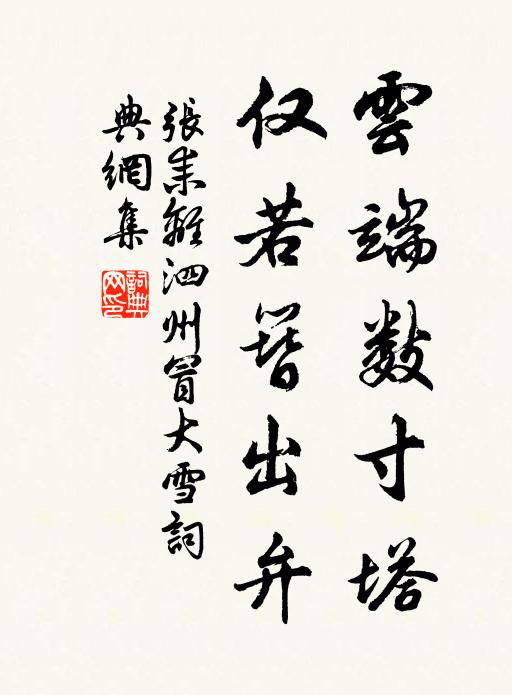 雲端數寸塔
仅若簪出弁
張耒離泗州冒大雪詞
典網集
詞典网印